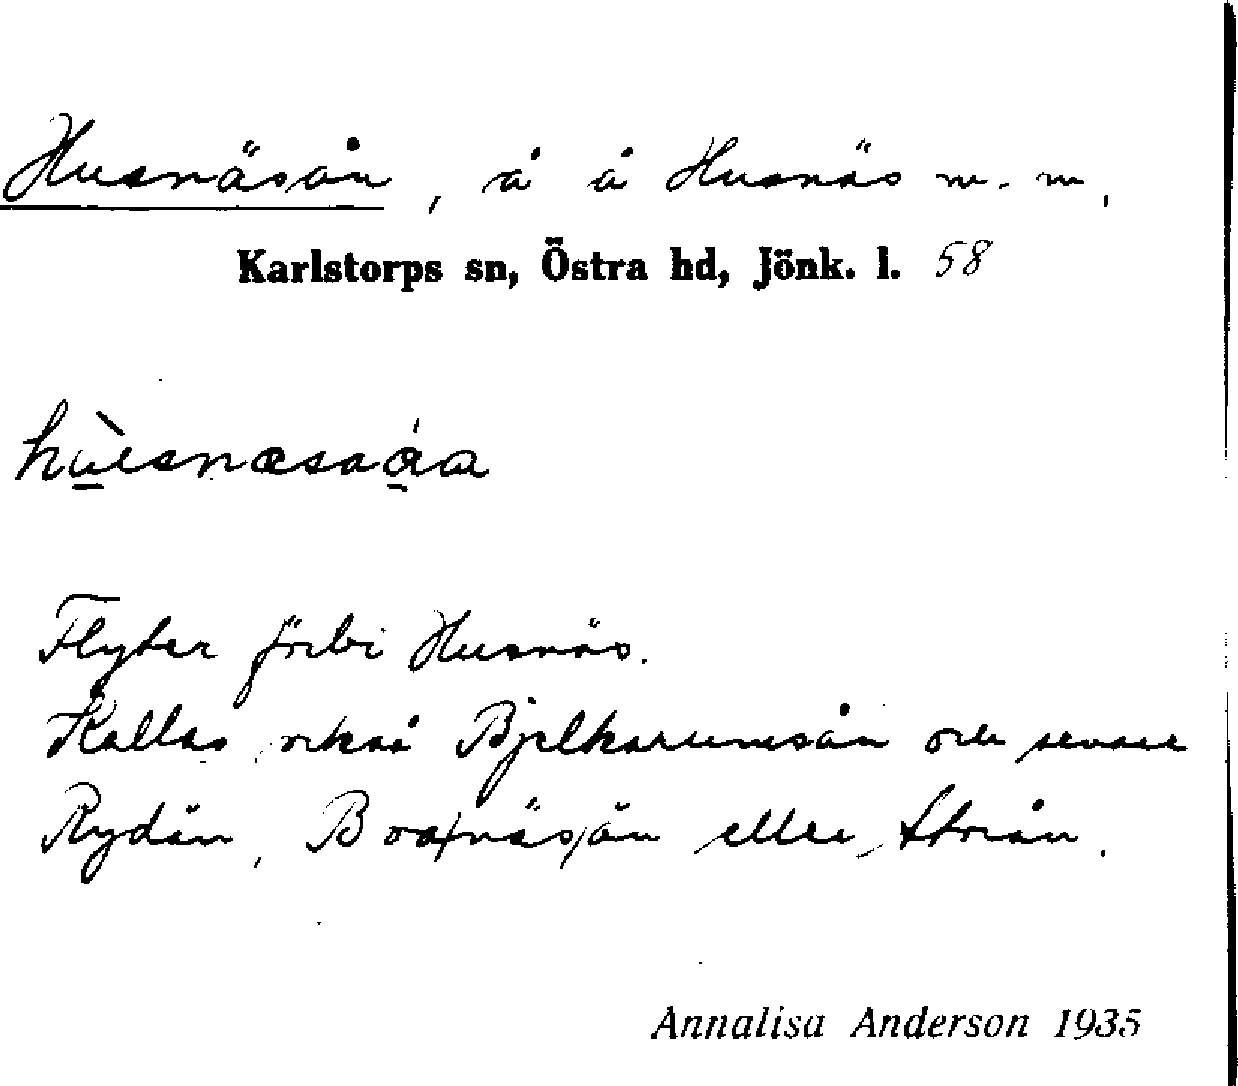 Husnäsån, å å Husnäs m. m.,
Karlstorps sn, Östra hd, Jönk. l. 58
Flyter förbi Husnäs.
Kallas också Bjelkarumsån och senare
Rydån, Bo(näs)ån eller Storån.
Annalisa Anderson 1935